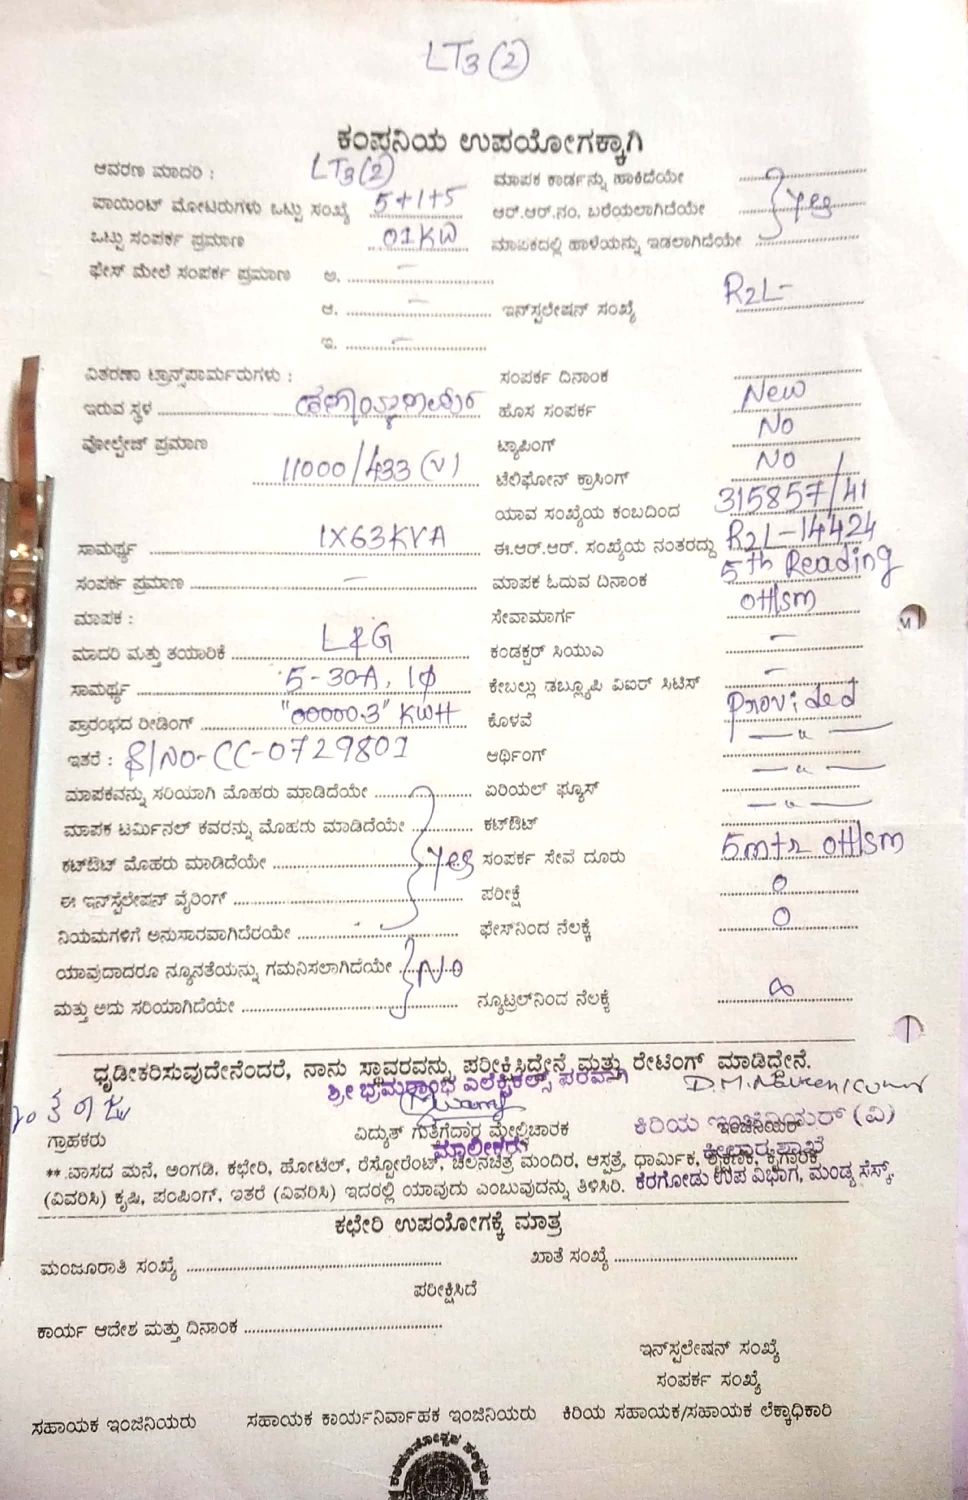 LT3(2)
ಕಂಪನಿಯ ಉಪಯೋಗಕ್ಕಾಗಿ
ಆವರಣ ಮಾದರಿ : LT3(2) ಮಾಪಕ ಕಾರ್ಡನ್ನು ಹಾಕಿದೆಯೇ
ಪಾಯಿಂಟ್ ಮೋಟರುಗಳು ಒಟ್ಟು ಸಂಖ್ಯೆ 5+1+5 ಆರ್.ಆರ್.ನಂ. ಬರೆಯಲಾಗಿದೆಯೇ Yes
ಒಟ್ಟು ಸಂಪರ್ಕ ಪ್ರಮಾಣ 01KW ಮಾಪಕದಲ್ಲಿ ಹಾಳೆಯನ್ನು ಇಡಲಾಗಿದೆಯೇ
ಫೇಸ್ ಮೇಲೆ ಸಂಪರ್ಕ ಪ್ರಮಾಣ ಅ. –
ಆ. – ಇನ್‌ಸ್ಟಲೇಷನ್ ಸಂಖ್ಯೆ R2L-
ಇ. –
ವಿತರಣಾ ಟ್ರಾನ್ಸ್‌ಫಾರ್ಮರುಗಳು : ಸಂಪರ್ಕ ದಿನಾಂಕ
ಇರುವ ಸ್ಥಳ ಹೊಸ ಸಂಪರ್ಕ New
ವೋಲ್ಟೇಜ್ ಪ್ರಮಾಣ ಟ್ಯಾಪಿಂಗ್ No
11000/433 (V) ಟೆಲಿಫೋನ್ ಕ್ರಾಸಿಂಗ್ No
ಯಾವ ಸಂಖ್ಯೆಯ ಕಂಬದಿಂದ 315857/41
ಸಾಮರ್ಥ್ಯ 1X63KVA ಈ.ಆರ್.ಆರ್. ಸಂಖ್ಯೆಯ ನಂತರದ್ದು R2L-14424
ಸಂಪರ್ಕ ಪ್ರಮಾಣ – ಮಾಪಕ ಓದುವ ದಿನಾಂಕ 5th Reading
ಮಾಪಕ : ಸೇವಾಮಾರ್ಗ OH/sm
ಮಾದರಿ ಮತ್ತು ತಯಾರಿಕೆ L&G ಕಂಡಕ್ಟರ್ ಸಿಯುಎ –
ಸಾಮರ್ಥ್ಯ 5-30A, 1φ ಕೇಬಲ್ಲು ಡಬ್ಲ್ಯೂಪಿ ವಿಐರ್ ಸಿಟಿಸ್ –
ಪ್ರಾರಂಭದ ರೀಡಿಂಗ್ "00000.3" KWH ಕೊಳವೆ Provided
ಇತರೆ : Sl No-CC-0729801 ಆರ್ಥಿಂಗ್ —"—
ಮಾಪಕವನ್ನು ಸರಿಯಾಗಿ ಮೊಹರು ಮಾಡಿದೆಯೇ ಏರಿಯಲ್ ಫ್ಯೂಸ್ —"—
ಮಾಪಕ ಟರ್ಮಿನಲ್ ಕವರನ್ನು ಮೊಹರು ಮಾಡಿದೆಯೇ ಕಟ್‌ಔಟ್ —"—
ಕಟ್‌ಔಟ್ ಮೊಹರು ಮಾಡಿದೆಯೇ Yes ಸಂಪರ್ಕ ಸೇವೆ ದೂರು 5mtr OH/sm
ಈ ಇನ್‌ಸ್ಟೆಲೇಷನ್ ವೈರಿಂಗ್ ಪರೀಕ್ಷೆ 0
ನಿಯಮಗಳಿಗೆ ಅನುಸಾರವಾಗಿದೆರಯೇ ಫೇಸ್‌ನಿಂದ ನೆಲಕ್ಕೆ 0
ಯಾವುದಾದರೂ ನ್ಯೂನತೆಯನ್ನು ಗಮನಿಸಲಾಗಿದೆಯೇ No
ಮತ್ತು ಅದು ಸರಿಯಾಗಿದೆಯೇ ನ್ಯೂಟ್ರಲ್‌ನಿಂದ ನೆಲಕ್ಕೆ
ಧೃಡೀಕರಿಸುವುದೇನೆಂದರೆ, ನಾನು ಸ್ಥಾವರವನ್ನು ಪರೀಕ್ಷಿಸಿದ್ದೇನೆ ಮತ್ತು ರೇಟಿಂಗ್ ಮಾಡಿದ್ದೇನೆ.
ಶ್ರೀ ಭ್ರಮರಾಂಭ ಎಲೆಕ್ಟ್ರಿಕಲ್ಸ್ ಪರವಾಗಿ D.M.Naveen Kumar
ಕಿರಿಯ ಇಂಜಿನಿಯರ್ (ವಿ)
ಗ್ರಾಹಕರು ವಿದ್ಯುತ್ ಗುತ್ತಿಗೆದಾರ ಮೇಲ್ವಿಚಾರಕ ಇಂಜಿನಿಯರ್
ಮಾಲೀಕರು ಕೀಲಾರ ಶಾಖೆ
** ವಾಸದ ಮನೆ, ಅಂಗಡಿ. ಕಛೇರಿ, ಹೋಟೆಲ್, ರೆಸ್ಟೋರೆಂಟ್, ಚಲನಚಿತ್ರ ಮಂದಿರ, ಆಸ್ಪತ್ರೆ, ಧಾರ್ಮಿಕ, ಶೈಕ್ಷಣಿಕ, ಕೈಗಾರಿಕೆ
(ವಿವರಿಸಿ) ಕೃಷಿ, ಪಂಪಿಂಗ್, ಇತರೆ (ವಿವರಿಸಿ) ಇದರಲ್ಲಿ ಯಾವುದು ಎಂಬುವುದನ್ನು ತಿಳಿಸಿರಿ. ಕೆರಗೋಡು ಉಪ ವಿಭಾಗ, ಮಂಡ್ಯ ಸೆಸ್ಕ್.
ಕಛೇರಿ ಉಪಯೋಗಕ್ಕೆ ಮಾತ್ರ
ಮಂಜೂರಾತಿ ಸಂಖ್ಯೆ ಖಾತೆ ಸಂಖ್ಯೆ
ಪರೀಕ್ಷಿಸಿದೆ
ಕಾರ್ಯ ಆದೇಶ ಮತ್ತು ದಿನಾಂಕ
ಇನ್‌ಸ್ಟಲೇಷನ್ ಸಂಖ್ಯೆ
ಸಂಪರ್ಕ ಸಂಖ್ಯೆ
ಸಹಾಯಕ ಇಂಜಿನಿಯರು ಸಹಾಯಕ ಕಾರ್ಯನಿರ್ವಾಹಕ ಇಂಜಿನಿಯರು ಕಿರಿಯ ಸಹಾಯಕ/ಸಹಾಯಕ ಲೆಕ್ಕಾಧಿಕಾರಿ